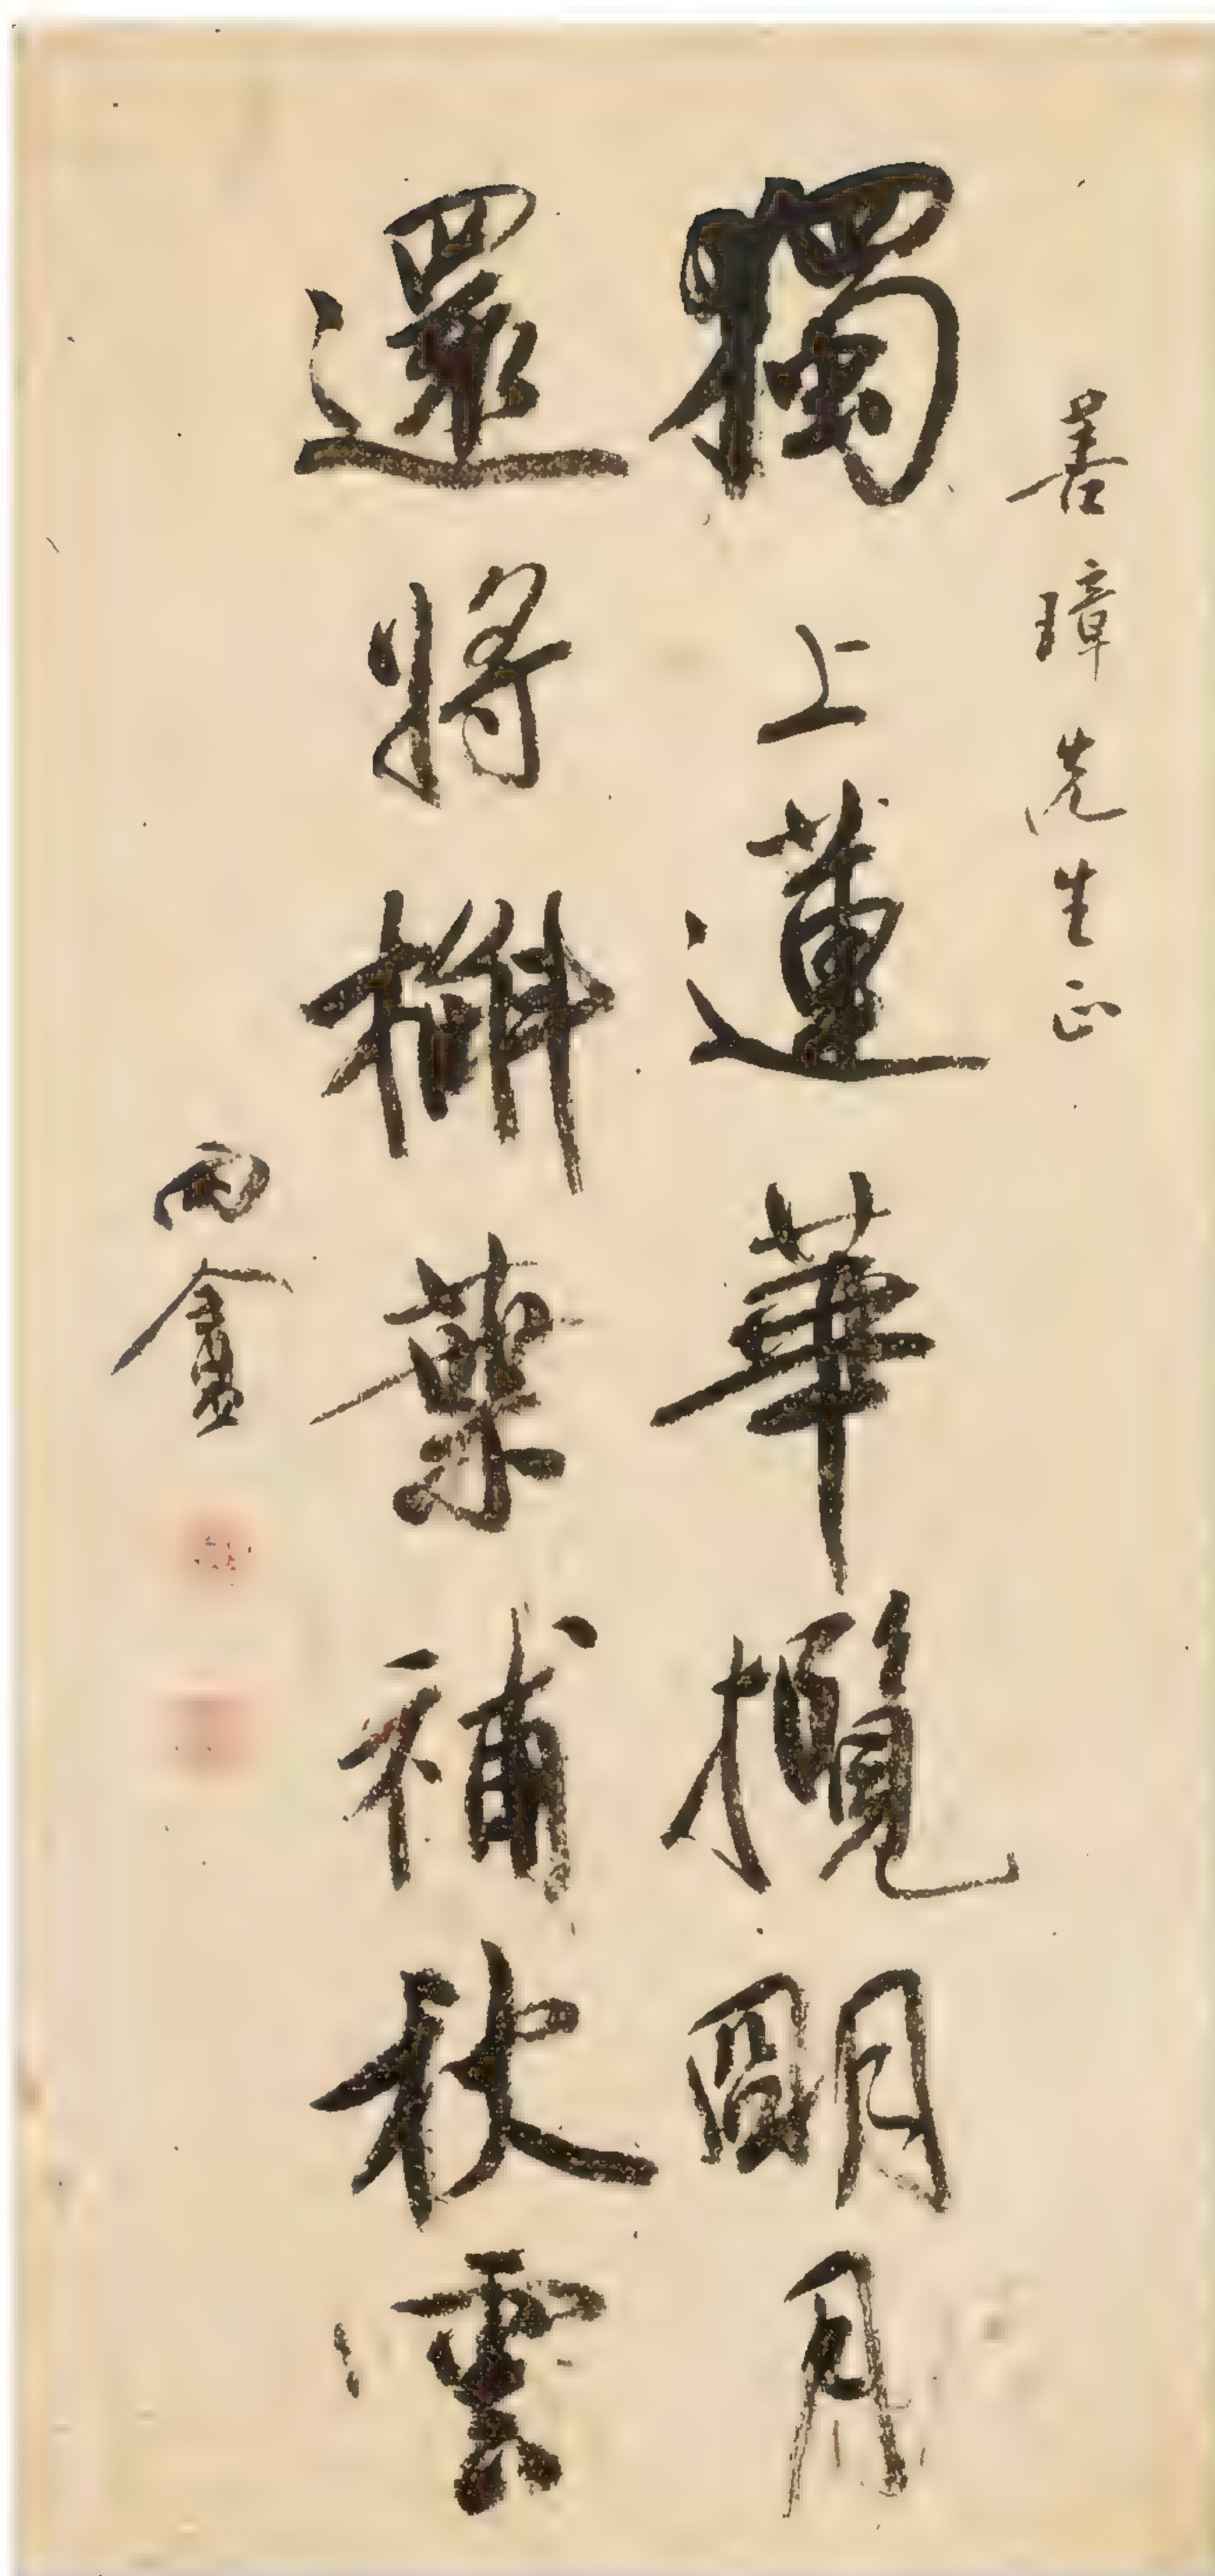 善璋先生正
獨上蓮華攬朙月
還將槲葉補秋雲
雨盦